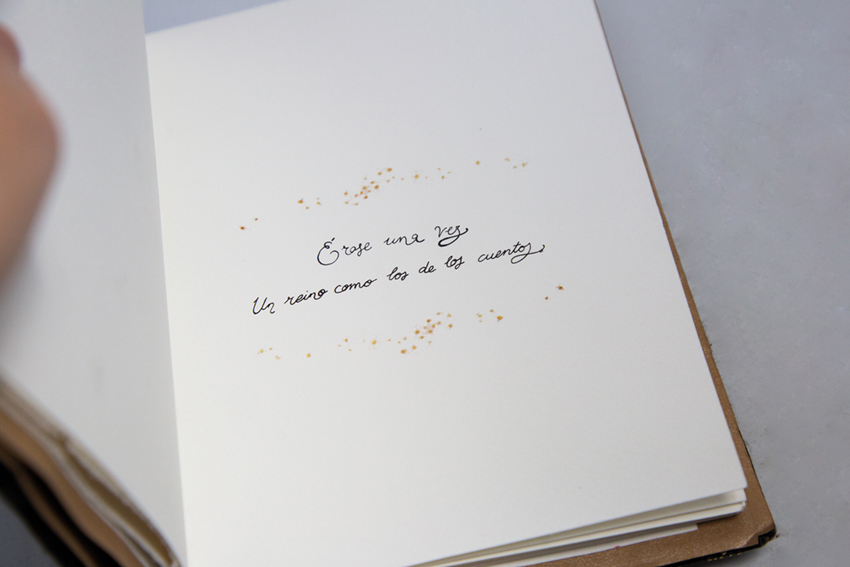 Érase una vez
Un reino como los de los cuentos,